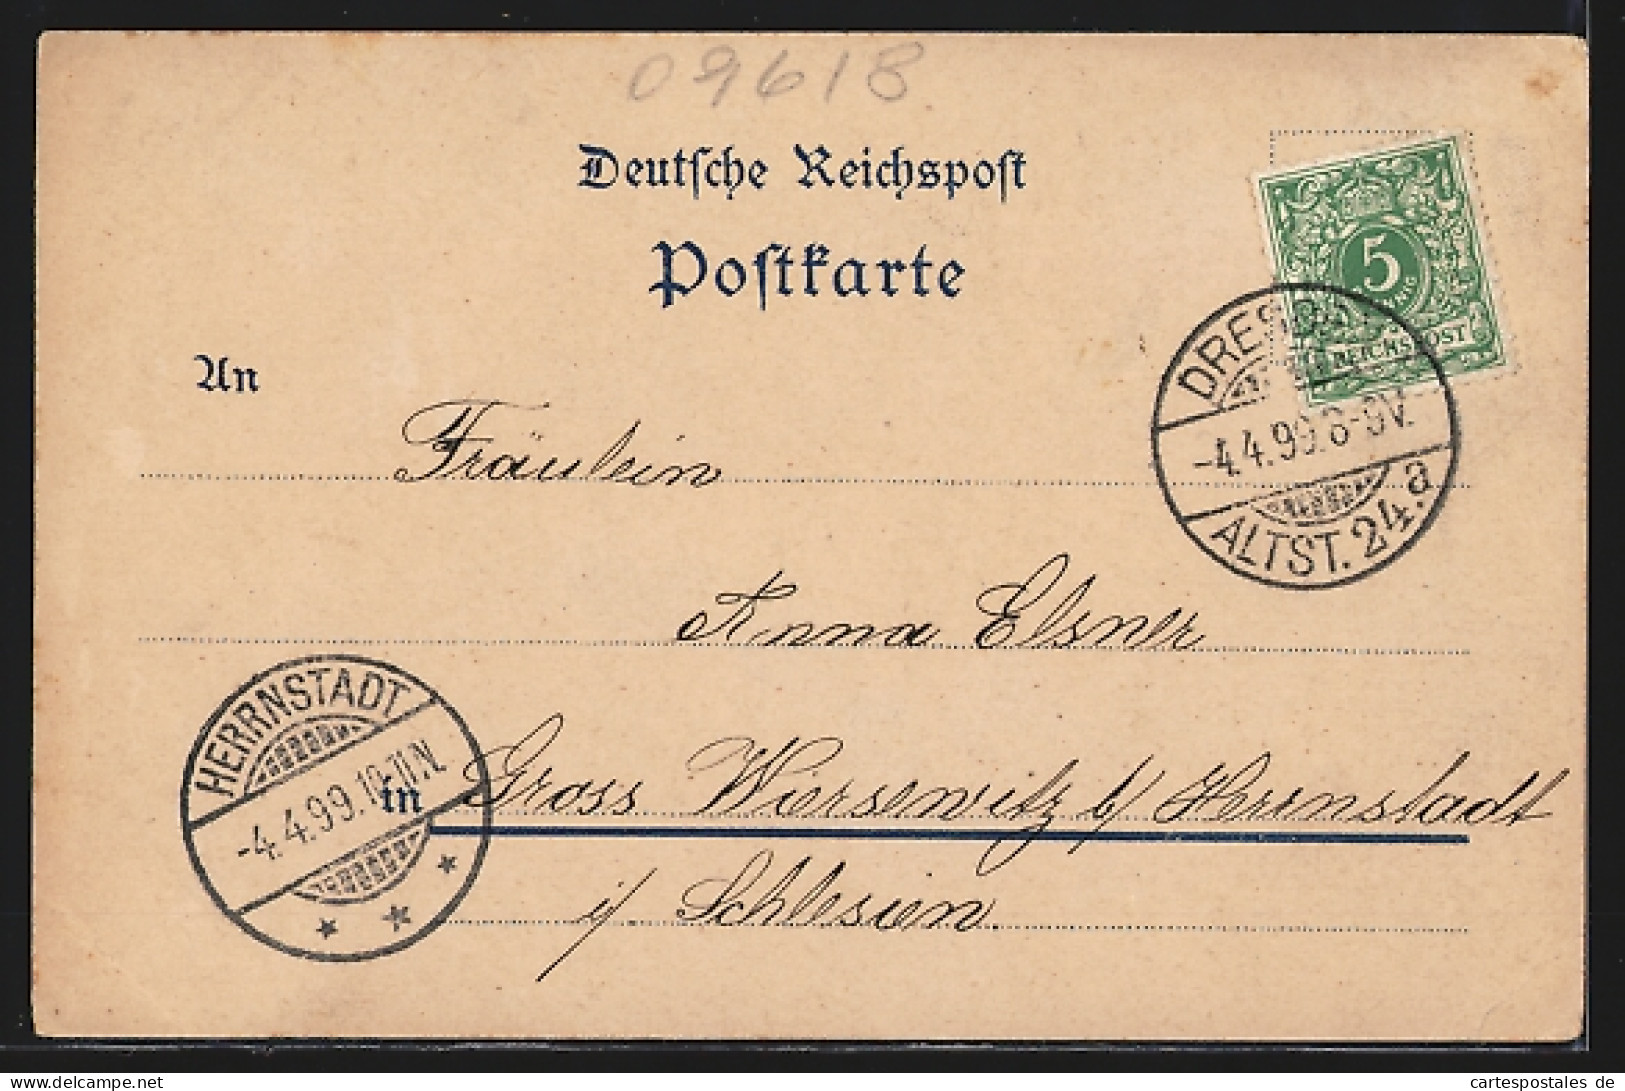 09618
Deutsche Reichspost
Postkarte
5
PFENNIG
REICHSPOST
DRESDEN
-4.4.99.8-9V.
ALTST. 24.a
An
Fräulein
Anna Elsner
HERRNSTADT
-4.4.99.10-11.N.
in Gross Wiersewitz b/ Herrnstadt
i/ Schlesien
cartespostales de